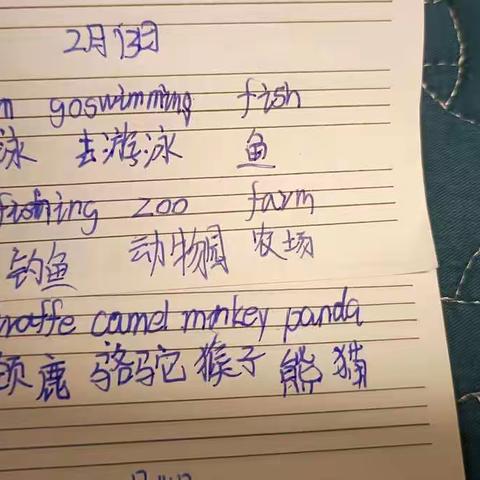 2月13日
goswimming fish
泳 去游泳 鱼
fishing zoo farm
钓鱼 动物园 农场
camel monkey panda
鹿 骆驼 猴子 熊猫